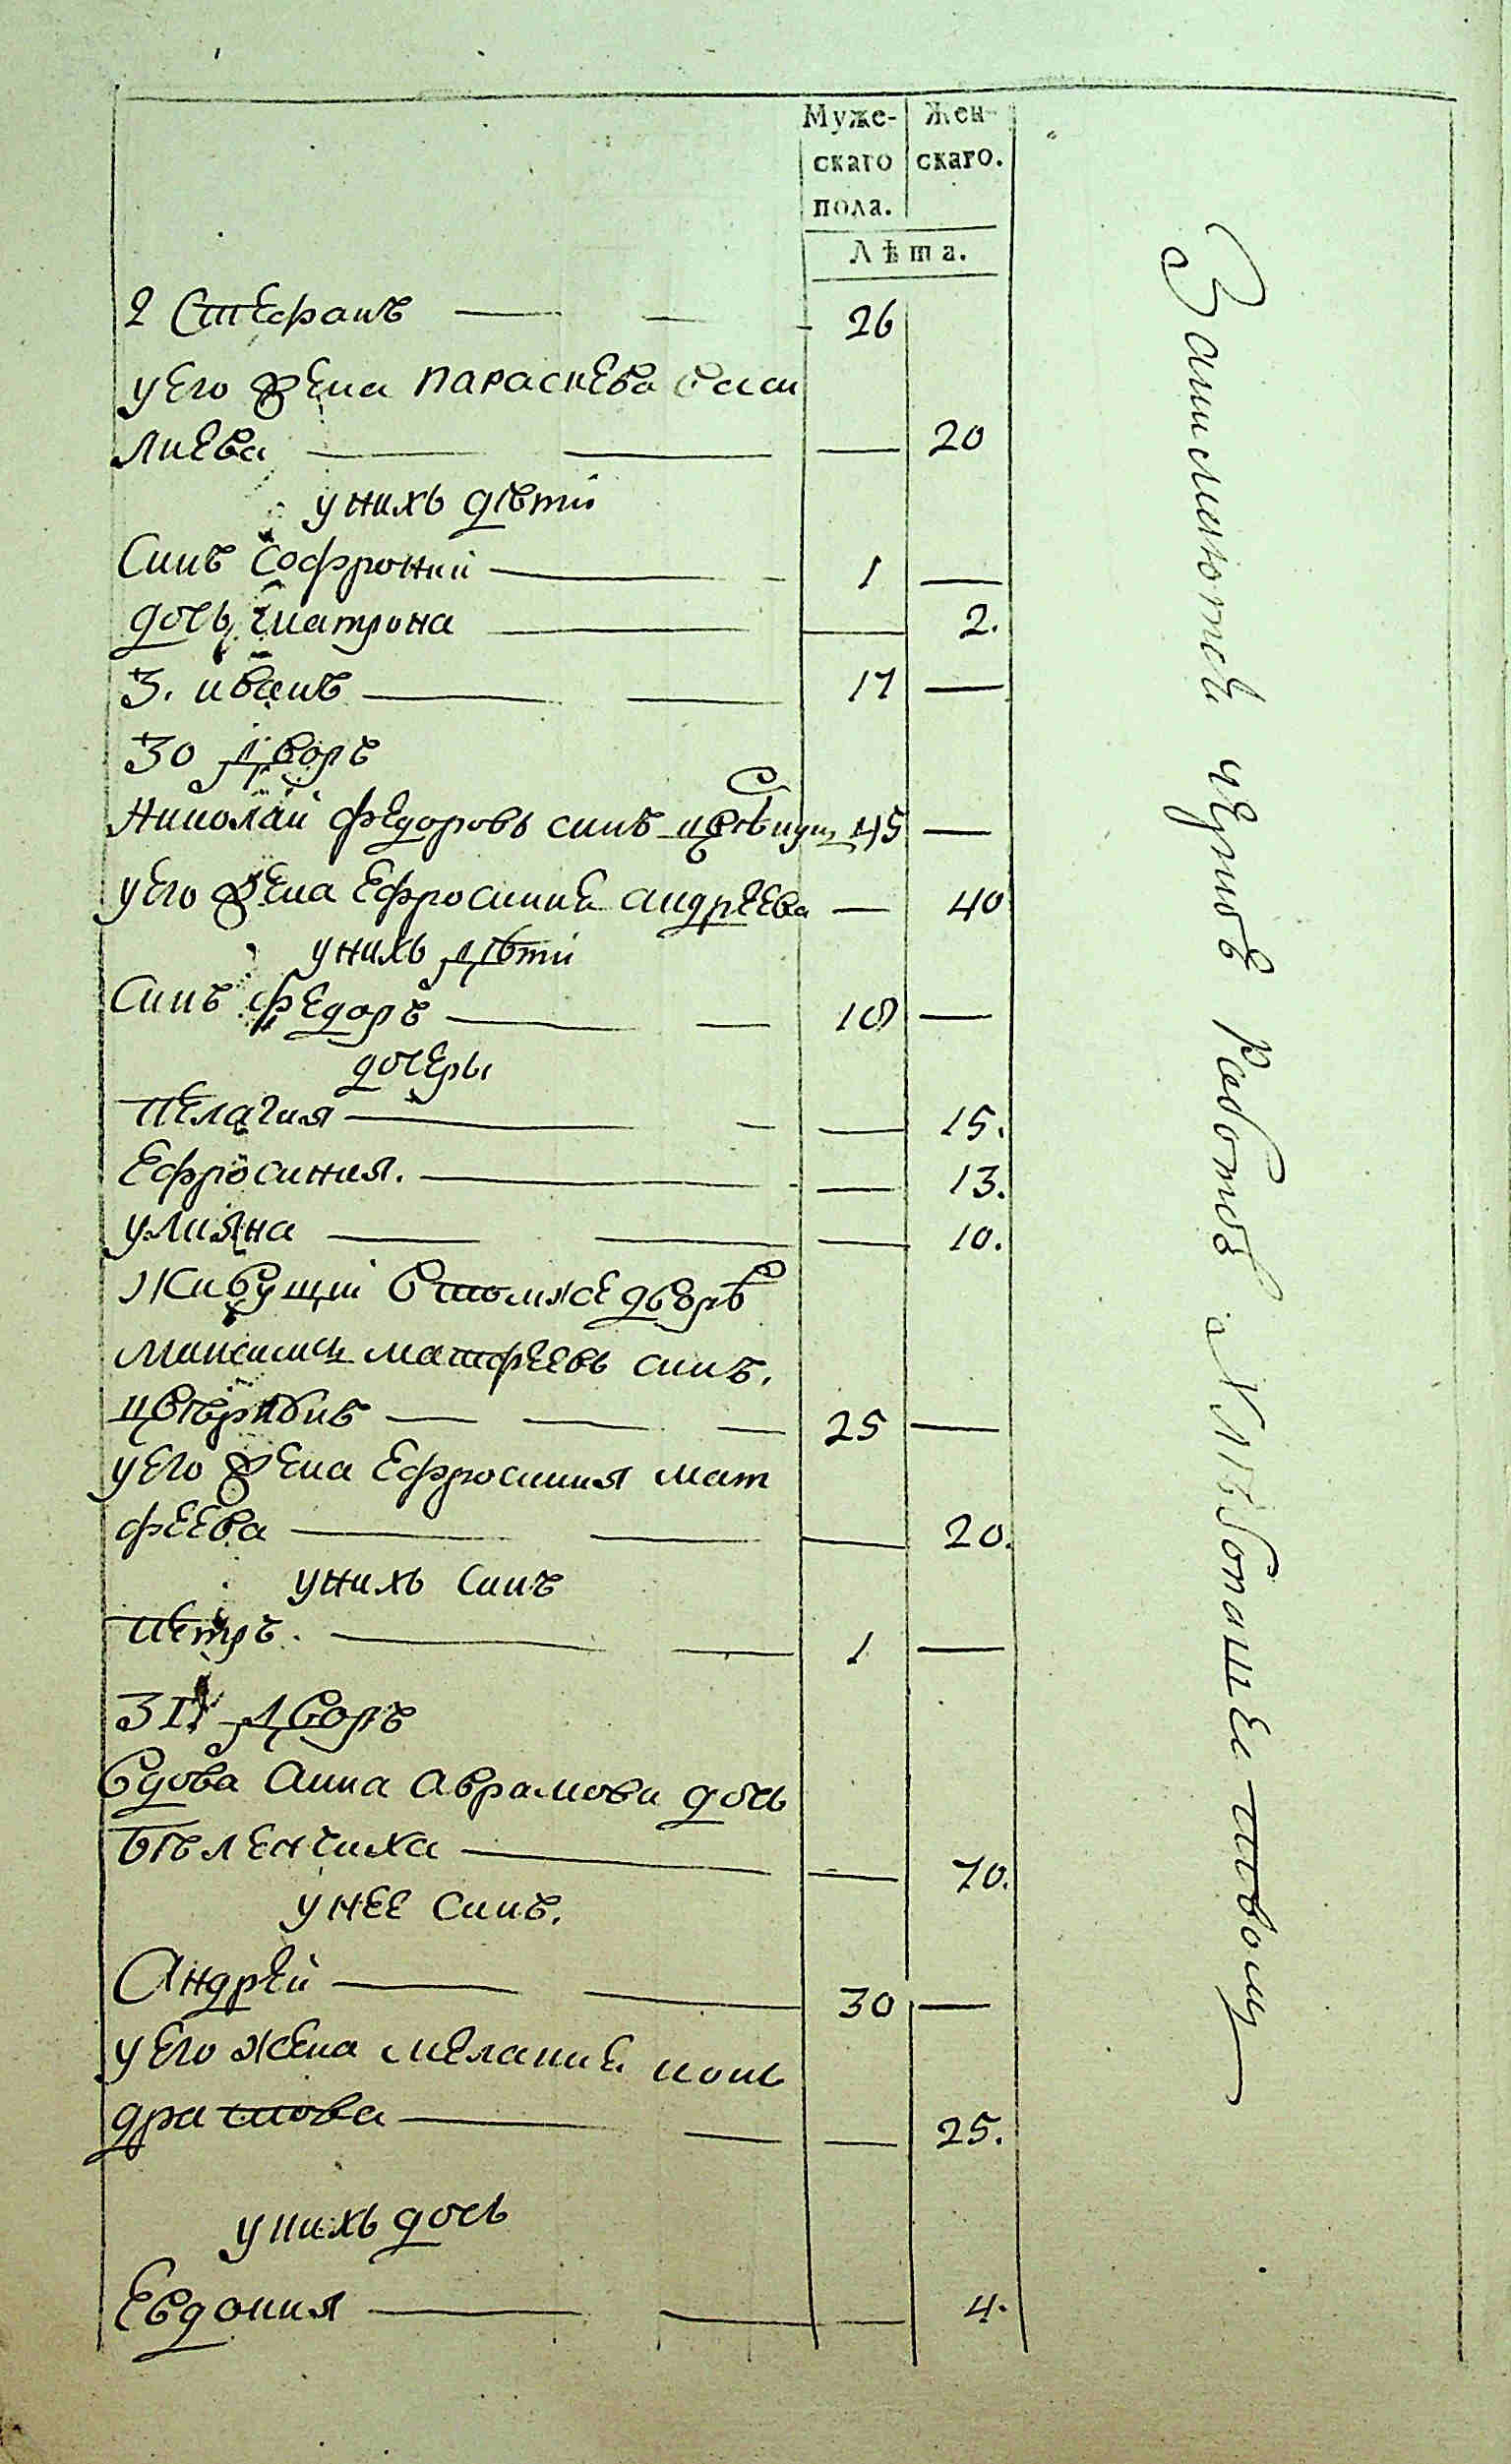 Муже- Жен-
скаго скаго.
пола.
Лѣта.
2 Стефанъ 26
у его жена параскева васи
лиева 20
у нихъ дѣти
Синъ Софроний 1
дочь матрона 2.
3. иванъ 17
30 Дворъ
Николай федоровъ синъ 45
у его жена Ефросиния андрѣева 40
у нихъ дѣти
Синъ федоръ 18
дочеры
пелагия 15.
Ефросиния. 13.
улияна 10.
Живущий в томже дворѣ
Максимъ матфеевъ синъ.
25
у его жена Ефросиния мат
феева 20.
у нихъ синъ
петръ. 1
31 Дворъ
вдова Анна аврамова дочь
бѣленчиха 70.
у нее синъ.
Андрей 30
у его жена мелания кон
дратова 25.
у нихъ дочь
Евдокия 4.
Занимаютсѧ черной работой и хлѣбопашествомъ